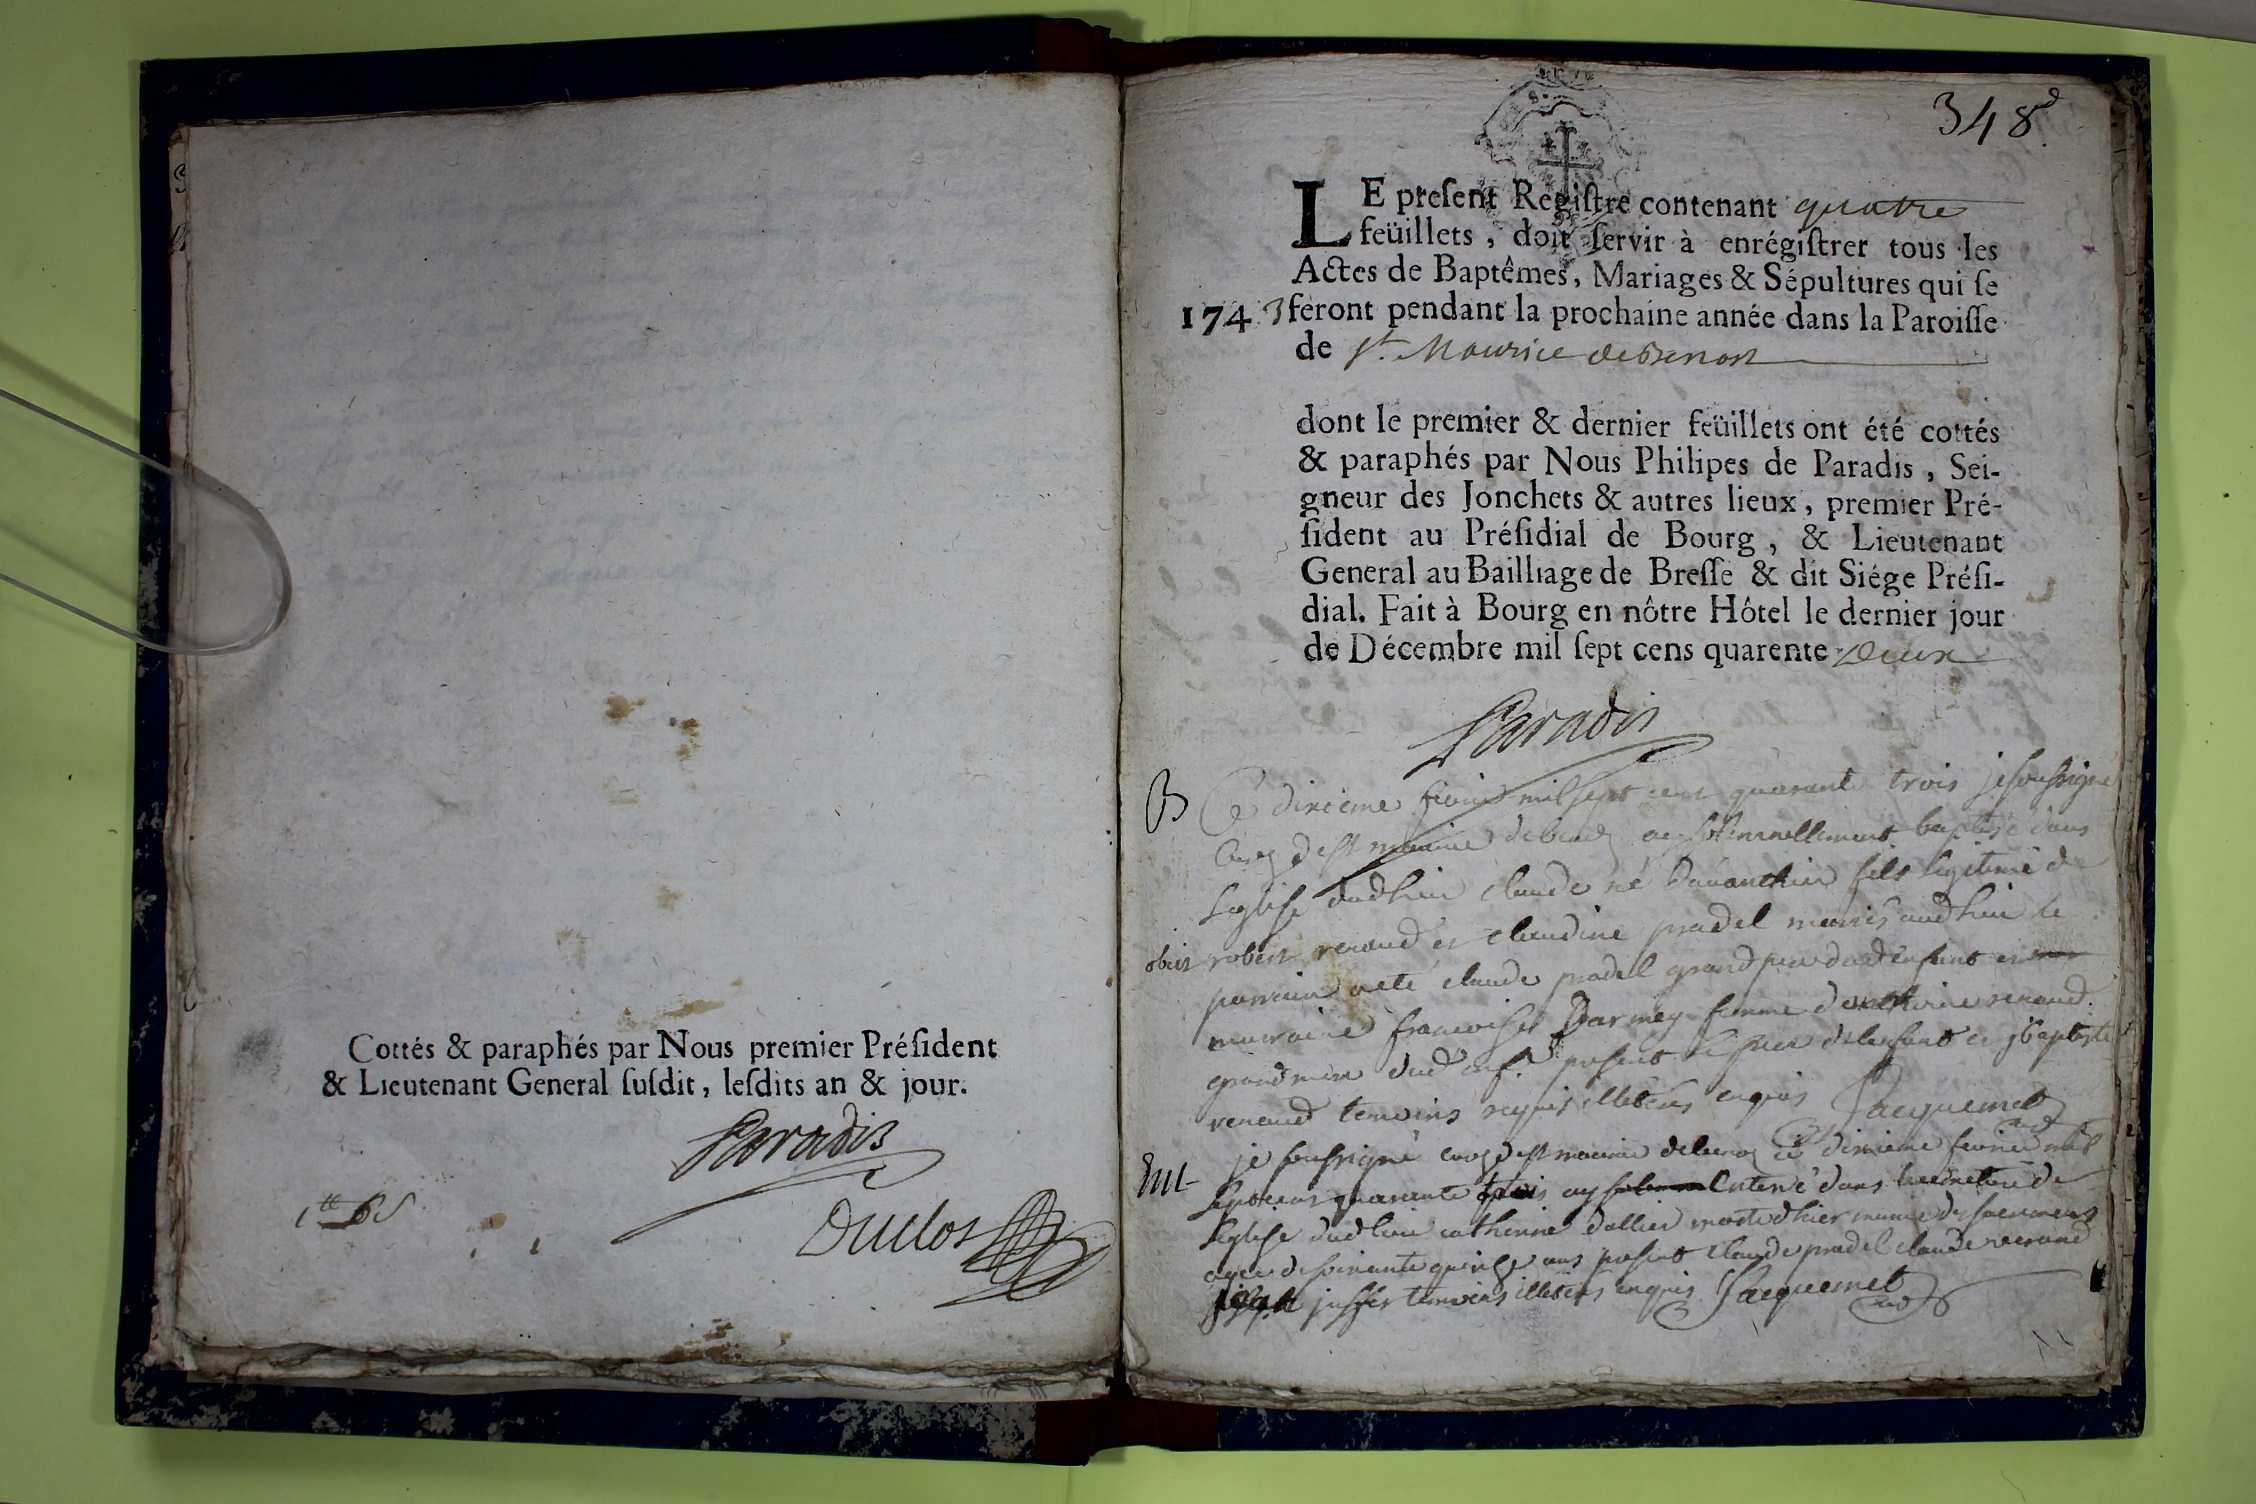 Cottés & paraphés par Nous premier Préſident
& Lieutenant General ſuſdit, leſdits an & jour.
Paradis
Duclos
348
LE preſent Regiſtre contenant quatre
feüillets, doit ſervir à enrégiſtrer tous les
Actes de Baptêmes, Mariages & Sépultures qui ſe
1743 feront pendant la prochaine année dans la Paroiſſe
de St. Maurice de
dont le premier & dernier feüillets ont été cottés
& paraphés par Nous Philipes de Paradis, Sei-
gneur des Jonchets & autres lieux, premier Pré-
ſident au Préſidial de Bourg, & Lieutenant
General au Bailliage de Breſſe & dit Siége Préſi-
dial. Fait à Bourg en nôtre Hôtel le dernier jour
de Décembre mil ſept cens quarente deux
Paradis
B Ce dixieme mil sept cent quarante trois je soussigné
curé de st maurice de ay solemnellement baptisé dans
L'eglise dud lieu claude né d'avanthier fils legitime de
obiit robert renaud et claudine pradel mariés aud lieu le
parrain a eté claude pradel grand pere dud enfant et
marraine francoise femme renaud
grand mere dud enft present de l'enfant et jbaptiste
renaud temoins requis illiterés enquis Jacquemet
Ent je soussigné curé de st maurice de ce dixieme fevrier mil
sept cens quarante trois ay enterré dans le cimetiere de
L'eglise dud lieu catherine dallier morte d'hier munie des sacremens
agée de soixante quinze ans present claude pradel claude renaud
temoins illiterés enquis Jacquemet